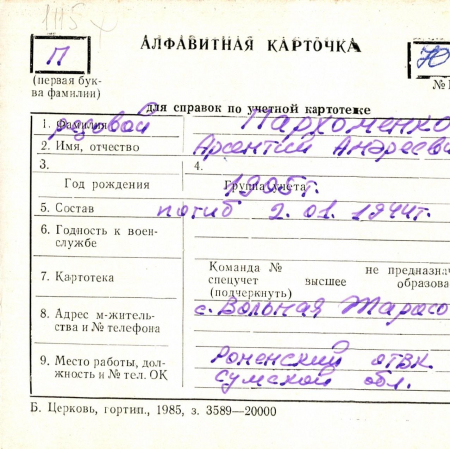 1115
АЛФАВИТНАЯ КАРТОЧКА
П
(первая бук-
ва фамилии)
№
для справок по учетной картотеке
1. Фамилия рядовой Пархоменко
2. Имя, отчество Арсентий Андрееви
3. 4.
Год рождения Группа учета 1905г.
5. Состав погиб 2.01.1944г.
6. Годность к воен-
службе
Команда № не предназнач
7. Картотека спецучет высшее образова
(подчеркнуть)
8. Адрес м-житель- с. Вольная Тарасо
ства и № телефона
9. Место работы, дол- Роменский ОТВК
жность и № тел. ОК Сумской обл.
Б. Церковь, гортип., 1985, з. 3589—20000